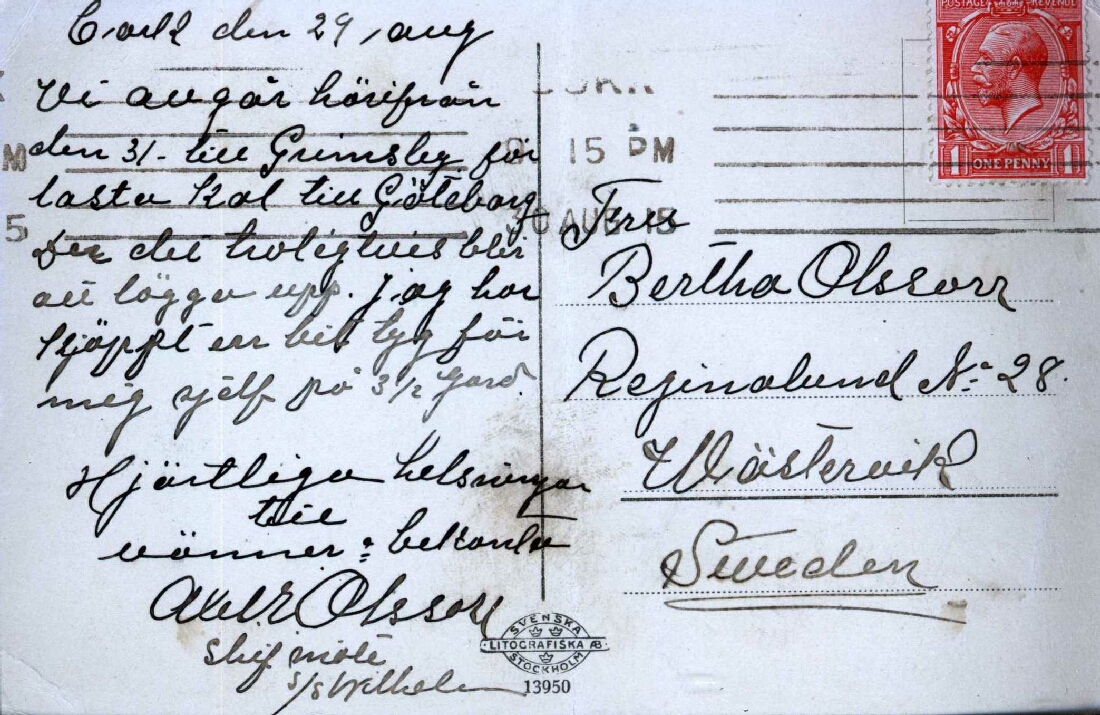 Cork den 29, aug
Vi avgår härifrån
den 31- till Grimsby för
lasta Kol till Göteborg
Der det troligtvis blir
att lägga upp. Jag har
kjöppt en bit tyg för
mig sjelf på 3 1/2 Yard.
Hjärtliga helsningar
till
vänner & bekanta
Axel Olsson
s/s Wilhelm
CORK
15 PM
30 AUG 15
Fru
Bertha Olsson
Reginalund No 28.
Wästervik
Sweden
POSTAGE REVENUE
1 ONE PENNY 1
SVENSKA
LITOGRAFISKA AB
STOCKHOLM
13950